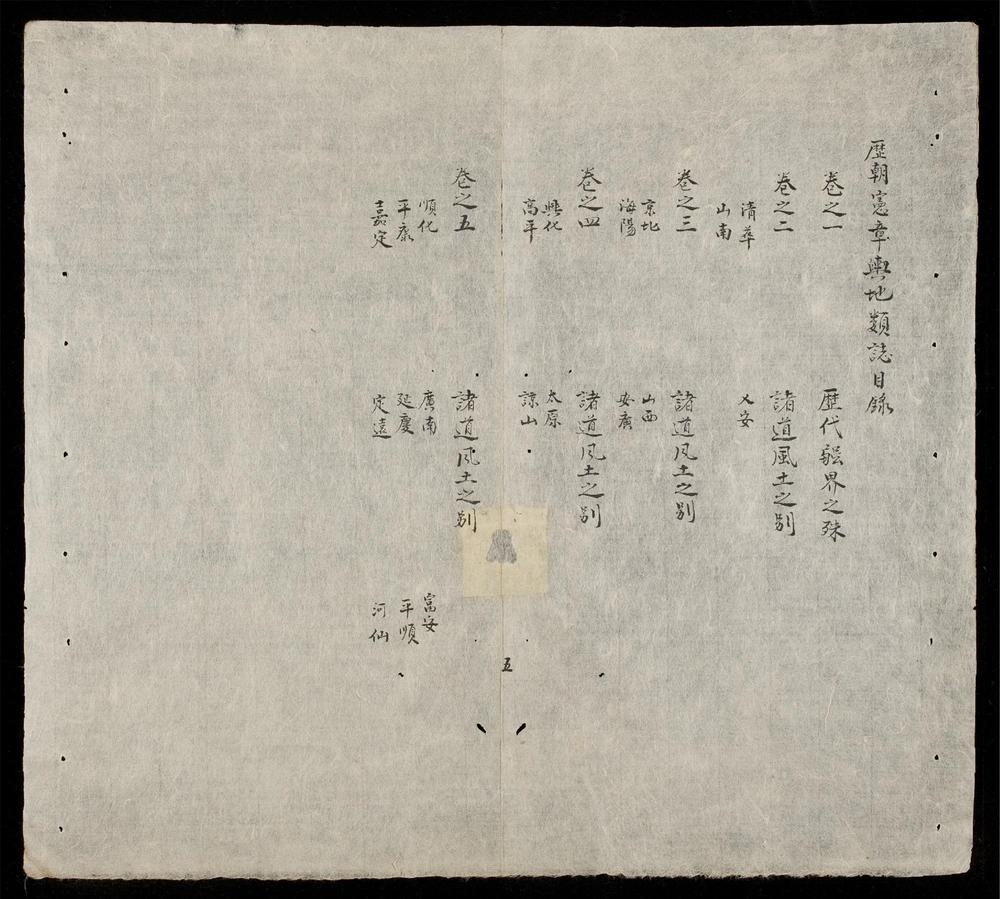 歷朝憲章輿地類誌目錄
卷之一 歷代疆界之殊
卷之二 諸道風土之別
清華 乂安
山南
卷之三 諸道风土之别
京北 山西
海陽 安廣
卷之四 諸道风土之别
興化 太原
高平 諒山
卷之五 諸道风土之别
順化 廣南 富安
平康 延慶 平順
嘉定 定遠 河仙
五